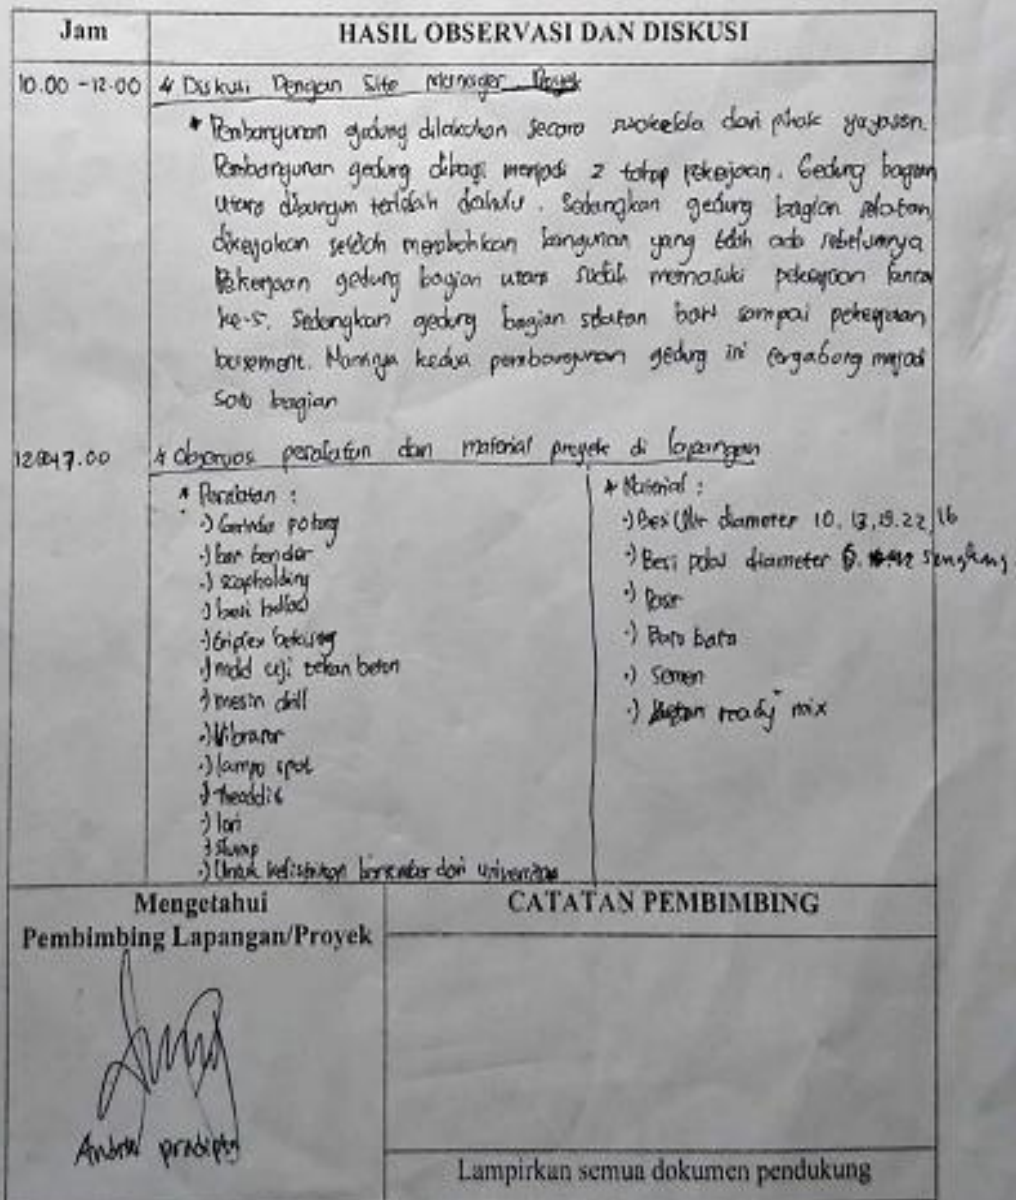 Jam HASIL OBSERVASI DAN DISKUSI
10.00 - 12.00 * Diskusi Dengan Site Manager Proyek
* Pembangunan gedung dilakukan secara swakelola dari pihak yayasan.
Pembangunan gedung dibagi menjadi 2 tahap pekerjaan. Gedung bagian
utara dibangun terlebih dahulu. Sedangkan gedung bagian selatan
dikerjakan setelah merobohkan bangunan yang telah ada sebelumnya
Pekerjaan gedung bagian utara sudah memasuki pekerjaan lantai
ke-5. Sedangkan gedung bagian selatan baru sampai pekerjaan
basement. Nantinya kedua pembangunan gedung ini tergabung menjadi
satu bagian
17.00 * Observasi peralatan dan material proyek di lapangan
* Peralatan :
·) Gerinda potong
·) bar bender
·) scapholding
·) besi hollow
·) triplex bekisting
·) mold uji tekan beton
·) mesin drill
·) Vibrator
·) lampu spot
·) theodolit
·) lori
·) slump
·) Untuk kelistrikan bersumber dari universitas
* Material :
·) Besi Ulir diameter 10, 13, 19, 22, 16
·) Besi polos diameter 8. sengkang
·) Pasir
·) Batu bata
·) Semen
·) Beton ready mix
Mengetahui
Pembimbing Lapangan/Proyek
Andrei pradipta
CATATAN PEMBIMBING
Lampirkan semua dokumen pendukung